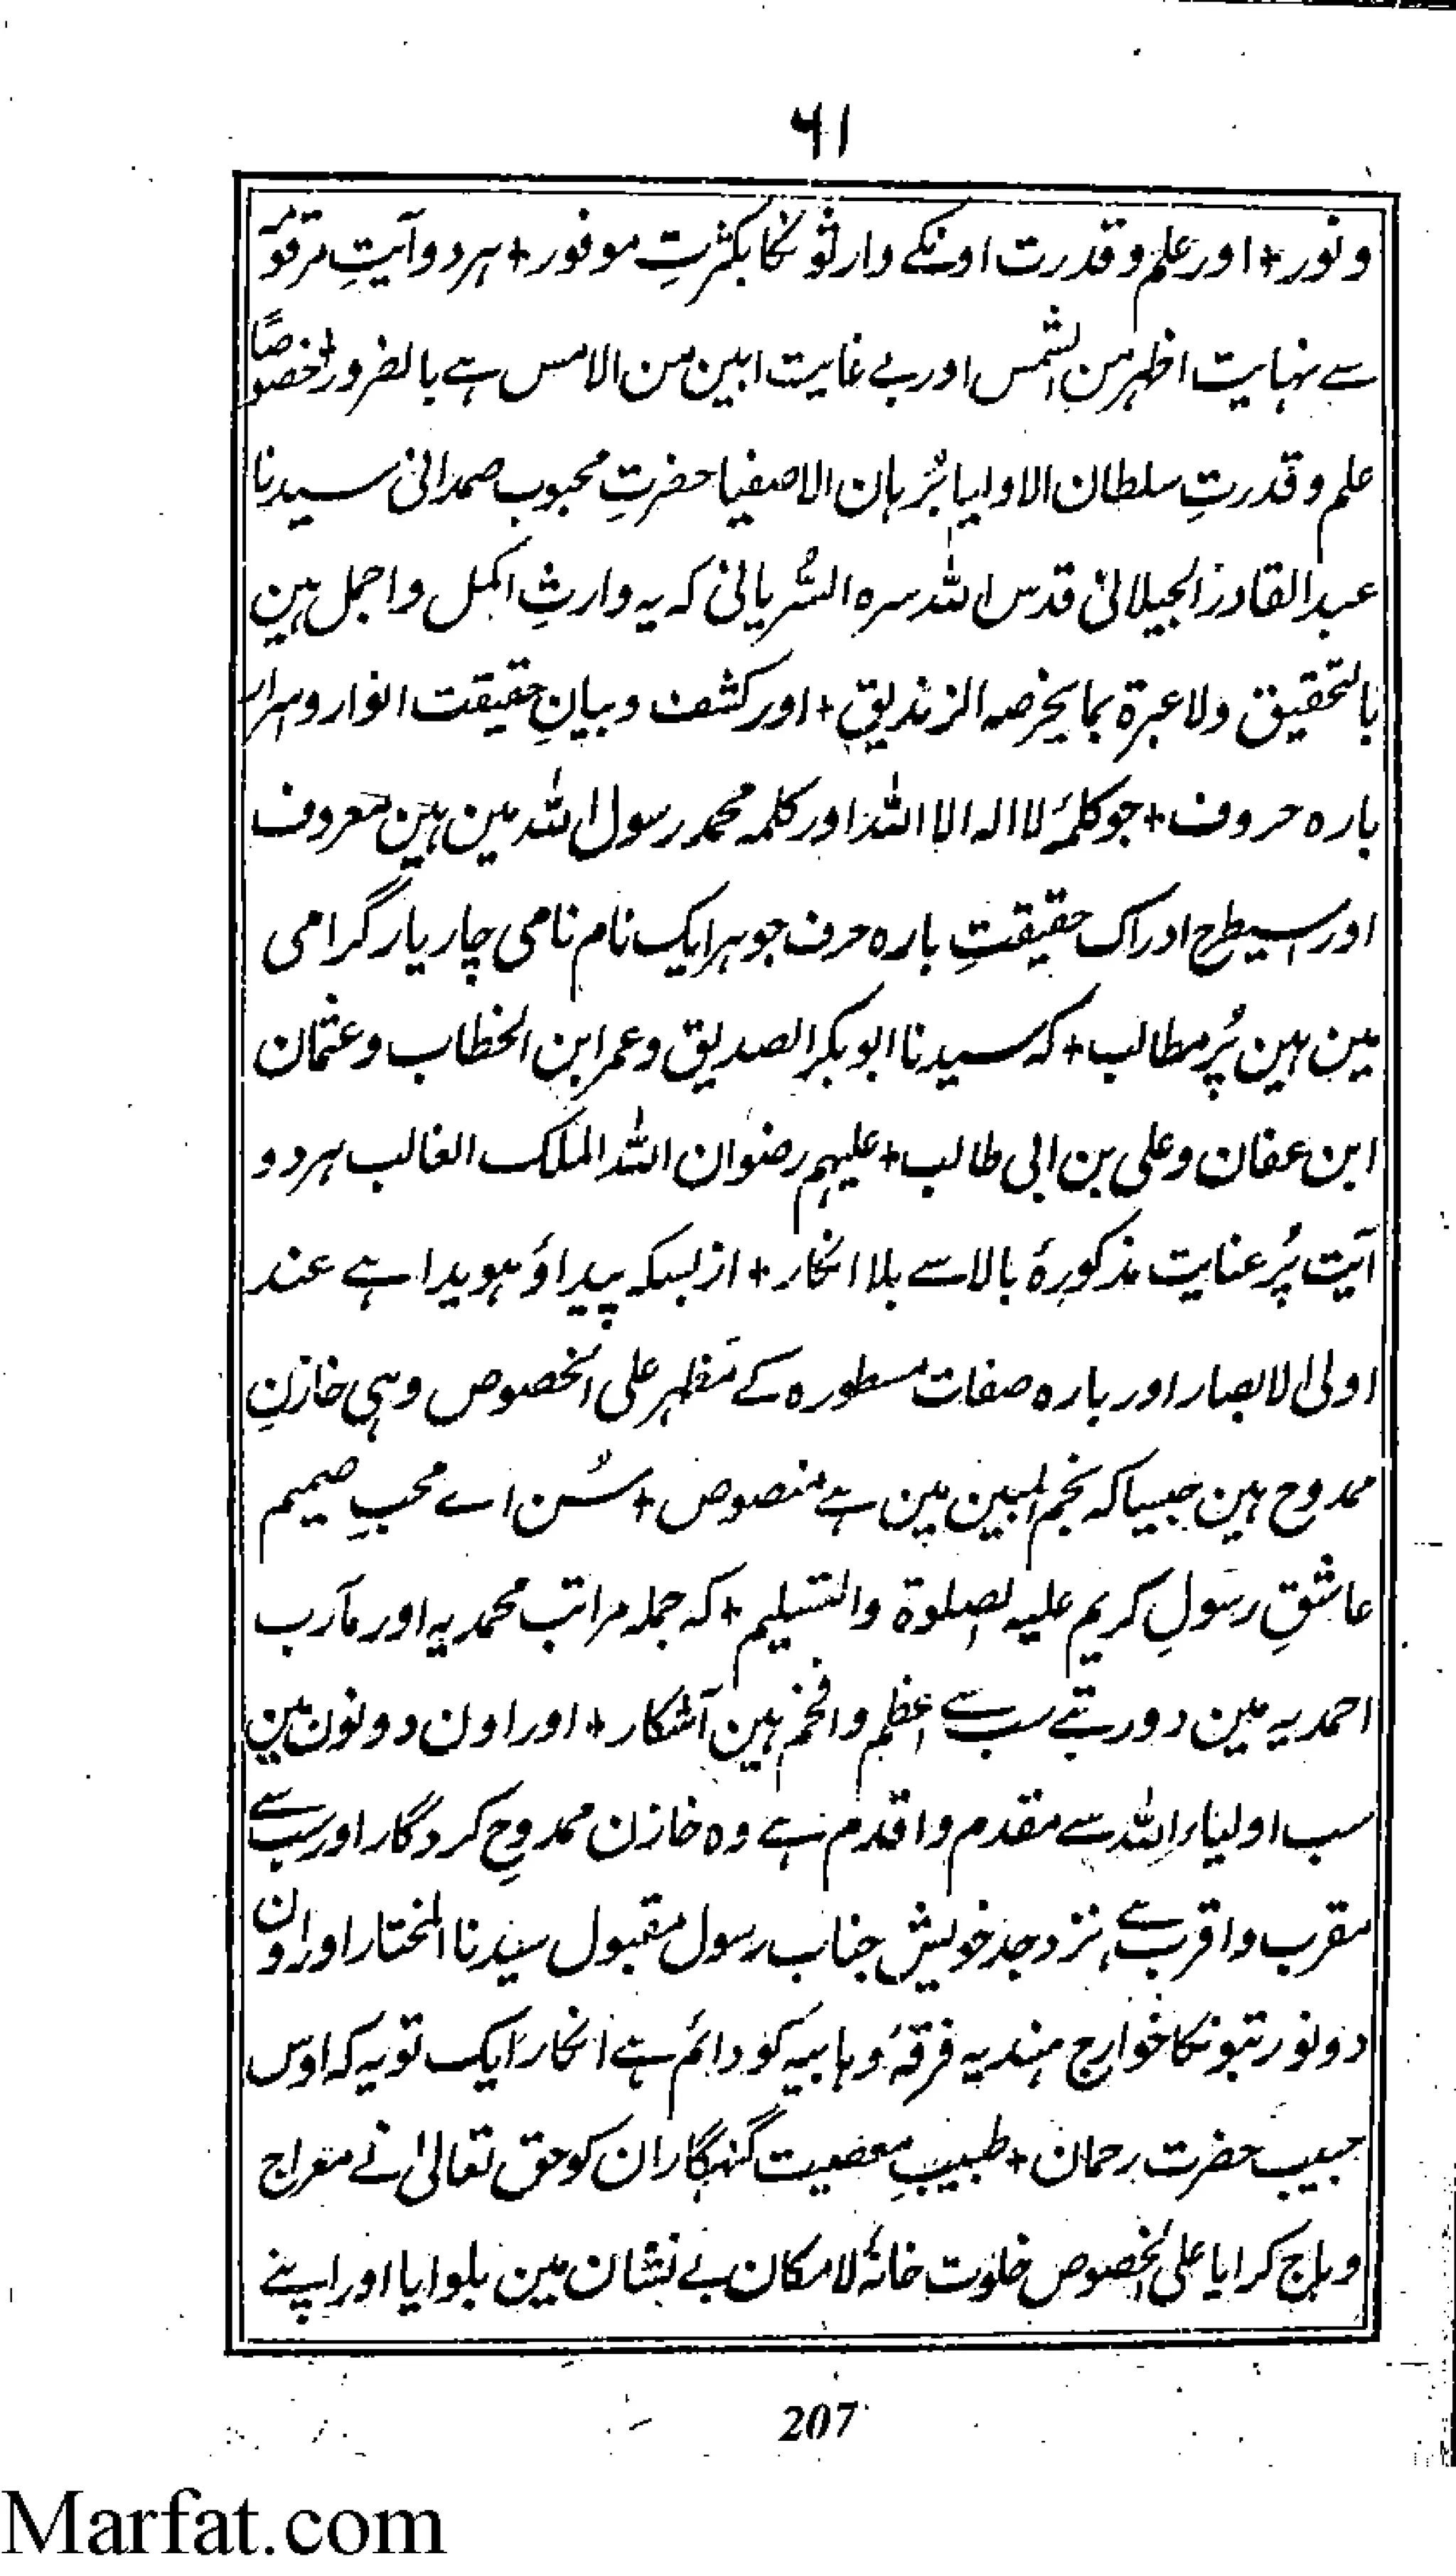 ۶۱
ونور + اور علم وقدرت اونکے وارثونکا بکثرتِ موفور + ہر دو آیتِ مرقومہ
سے نہایت اظہر من الشمس اور بے غایت ابین من الامس ہے بالضرور + خصوصًا
علم وقدرتِ سلطان الاولیا بُرہان الاصفیا حضرتِ محبوب صمدانی سیدنا
عبدالقادر الجیلانی قدس اللہ سرہ السُّریانی کہ یہ وارثِ اکمل واجمل ہین
بالتحقیق ولا عبرة بما یخرصہ الزندیق + اور کشف وبیانِ حقیقت انوار واسرار
بارہ حروف + جو کلمۂ لا الہ الا اللہ اور کلمہ محمد رسول اللہ مین ہین معروف
اور اسیطرح ادراک حقیقتِ بارہ حرف جو ہر ایک نام نامی چار یار گرامی
مین ہین پُر مطالب + کہ سیدنا ابوبکر الصدیق وعمر ابن الخطاب وعثمان
ابن عفان وعلی بن ابی طالب + علیہم رضوان اللہ الملک الغالب ہر دو
آیت پُر عنایت مذکورۂ بالا سے بلا انکار + از بسکہ پیدا ؤ ہویدا ہے عند
اولی الابصار اور بارہ صفات مسطورہ کے مَظہر علی الخصوص وہی خازنِ
ممدوح ہین جیسا کہ نجم المبین مین ہے منصوص + سُن اے محبِ صمیم
عاشقِ رسولِ کریم علیہ الصلوة والتسلیم + کہ جملہ مراتب محمدیہ اور مآرب
احمدیہ مین دو رتبے سب سے اعظم وافخم ہین آشکار + اور اون دونون مین
سب اولیاء اللہ سے مقدم واقدم ہے وہ خازن ممدوح کردگار اور سب سے
مقرب واقرب ہے نزد جد خویش جناب رسول مقبول سیدنا المختار اور اون
دونو رتبونکا خوارج ہندیہ فرقۂ وہابیہ کو دائم ہے انکار ایک تو یہ کہ اوس
حبیب حضرت رحمان + طبیبِ معصیت گنہگاران کو حق تعالیٰ نے معراج
وہاج کرایا علی الخصوص خلوت خانۂ لامکان بے نشان مین بلوایا اور اپنے
207
Marfat.com